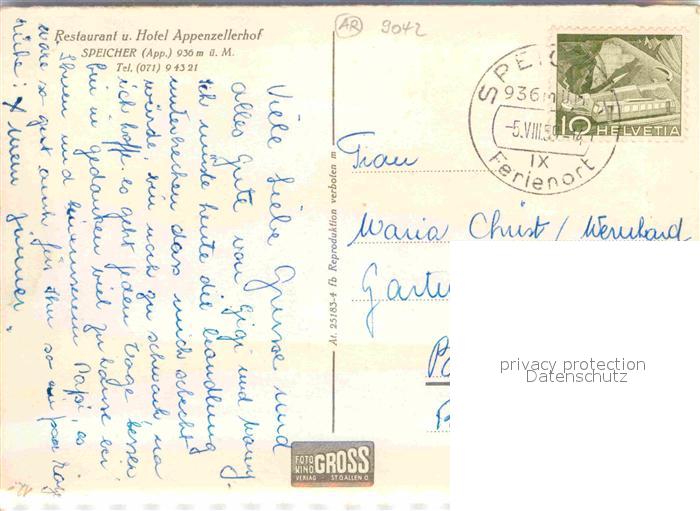 AR 9042
Restaurant u. Hotel Appenzellerhof
SPEICHER (App.) 936 m ü. M.
Tel. (071) 9 43 21
Viele liebe Grüsse und
alles Gute von Gigi und
Ich müste heute die Handlung
unterbrechen das mich
würde, bin noch zu schwach, na
ich hoffe es geht jeden Tage besser
bin in gedanken viel zu hause bei
Ihnen und Papi, es
wäre so gut auch für Ihn so ein paar Tage
rühe
Zimmer
A1. 25183-4 fb Reproduktion verboten m
FOTO KINO GROSS
VERLAG ST. GALLEN O
SPEICHER
936 m ü. M.
-5.VIII.59.-12
IX
Ferienort
10 HELVETIA
Frau
Maria Christ / Wernhard
privacy protection
Datenschutz